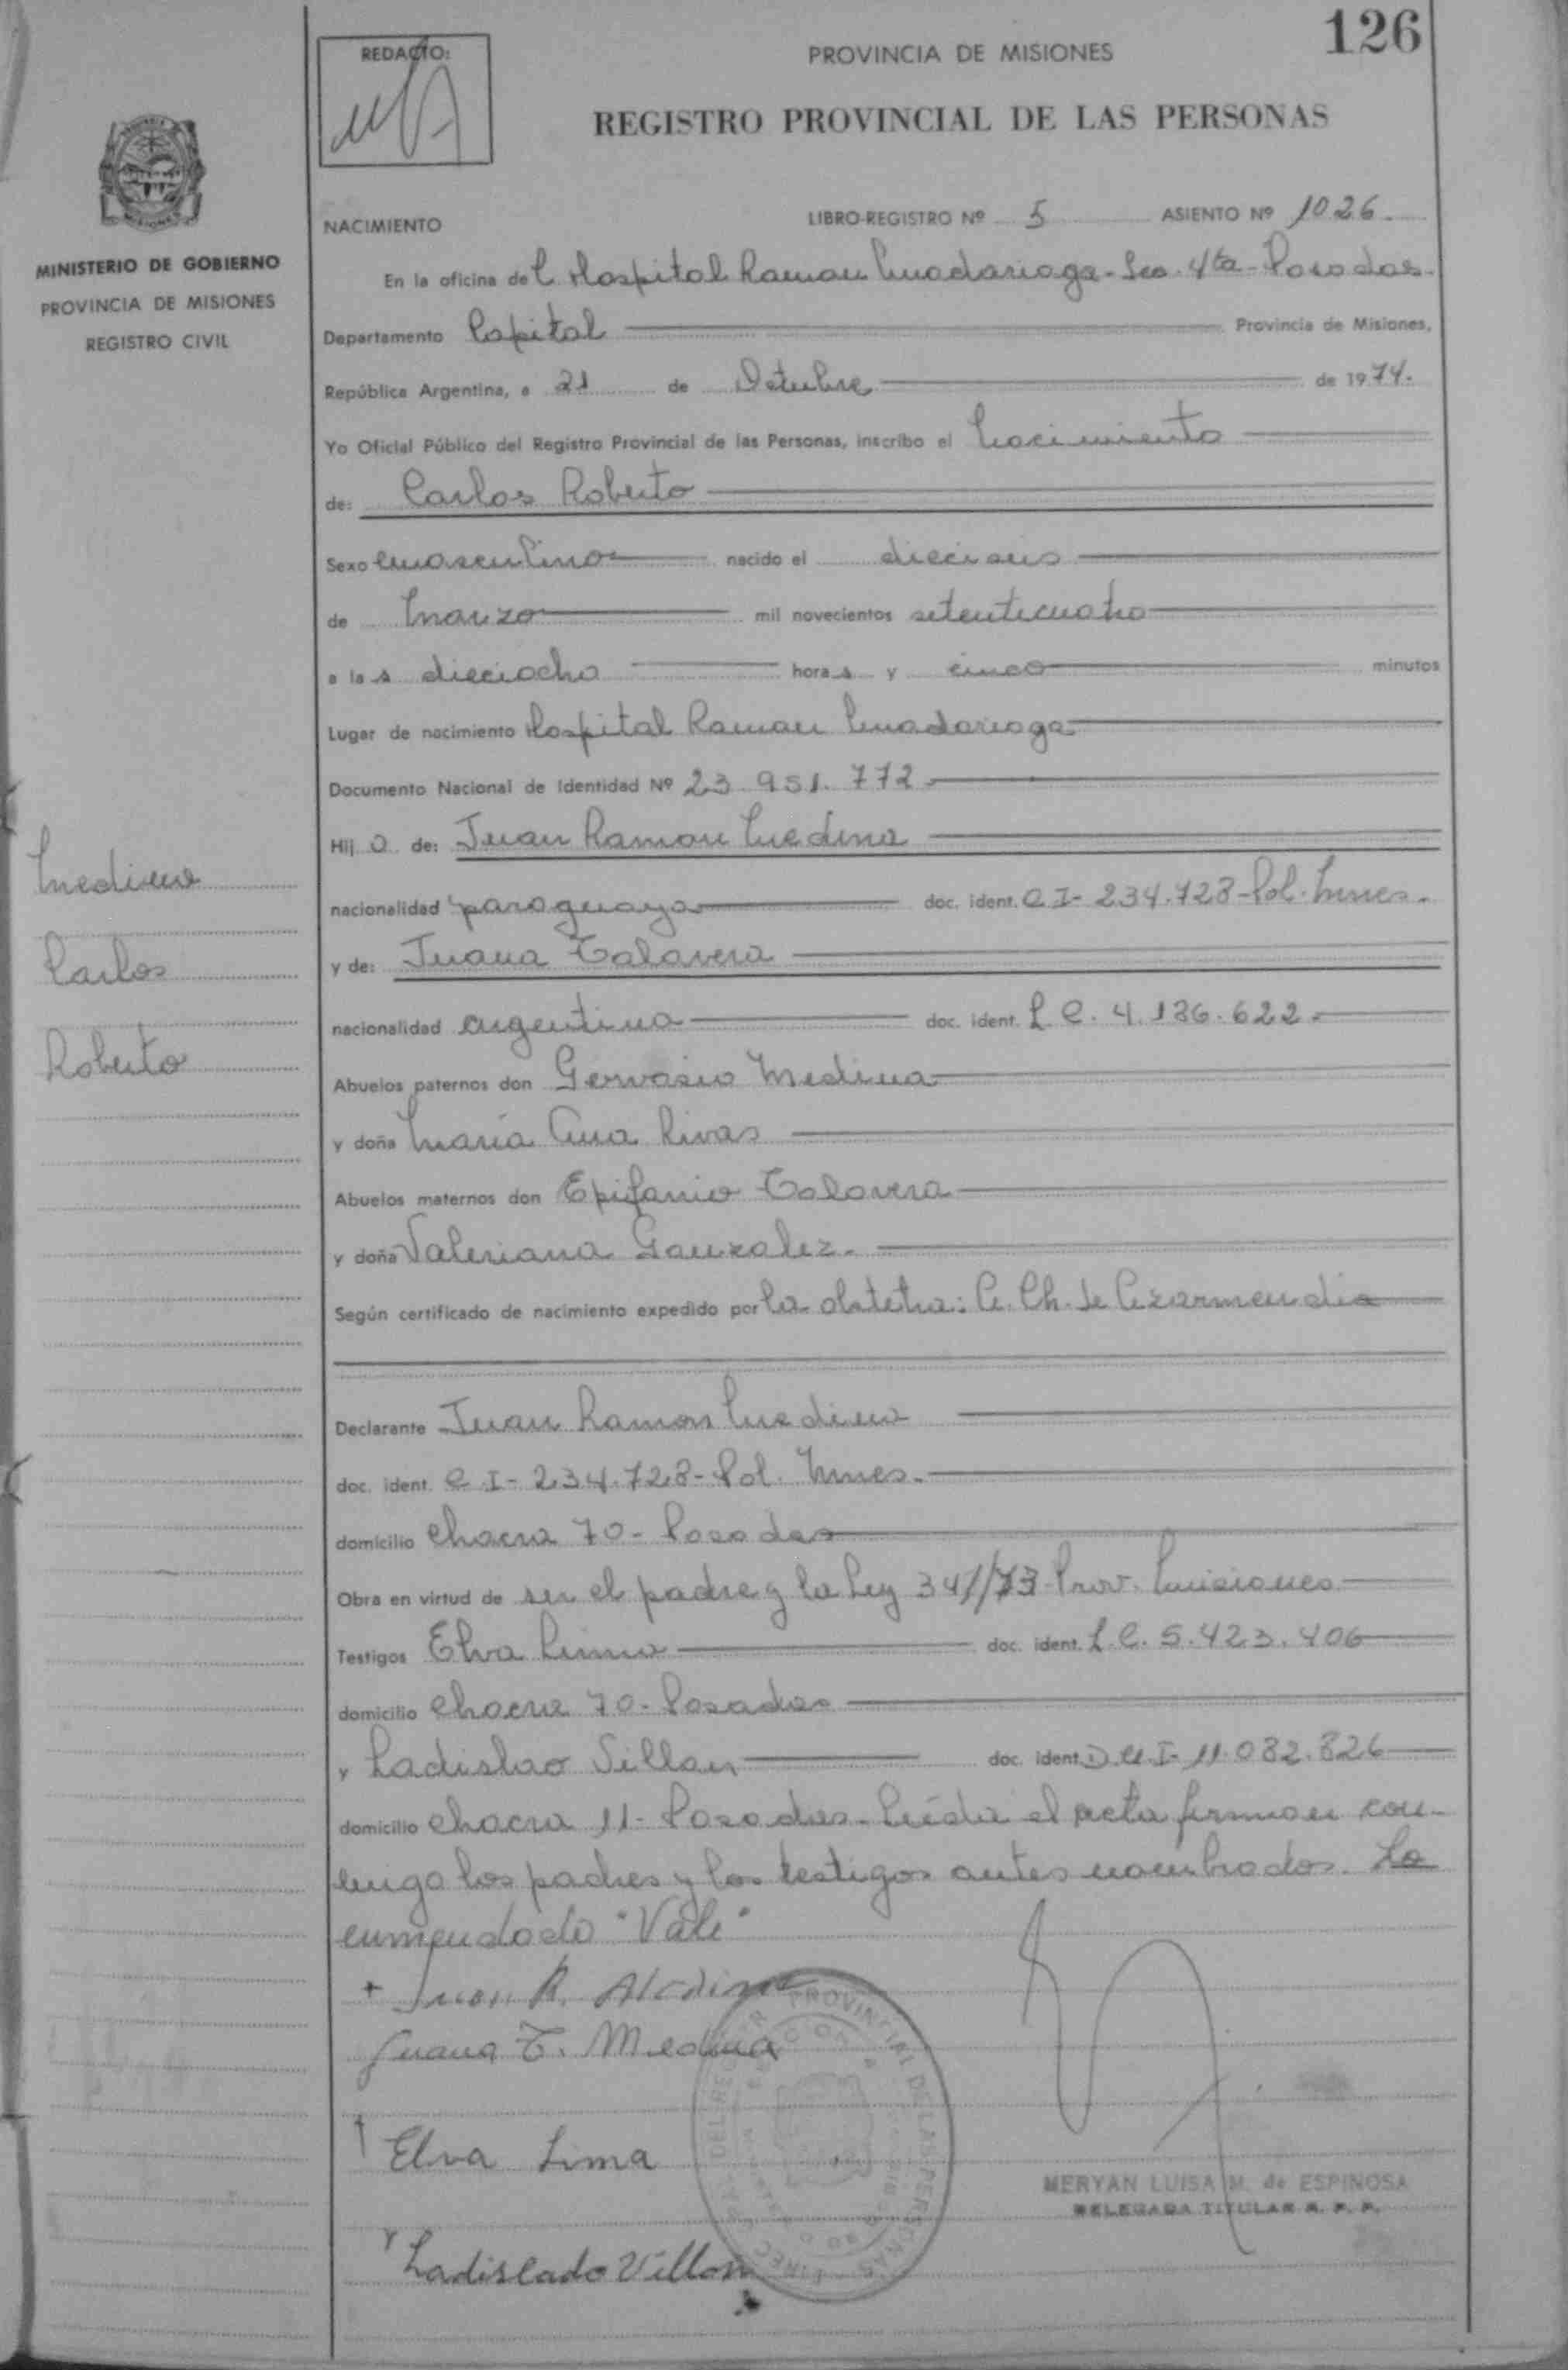 126
REDACTO:
PROVINCIA DE MISIONES
REGISTRO PROVINCIAL DE LAS PERSONAS
MINISTERIO DE GOBIERNO
PROVINCIA DE MISIONES
REGISTRO CIVIL
NACIMIENTO LIBRO-REGISTRO Nº 5 ASIENTO Nº 1026.
En la oficina del Hospital Ramon Madariaga - Sec. 4ta - Posadas -
Departamento Capital Provincia de Misiones,
República Argentina, a 21 de Octubre de 1974.
Yo Oficial Público del Registro Provincial de las Personas, inscribo el nacimiento
de: Carlos Roberto
Sexo masculino nacido el dieciseis
de marzo mil novecientos setenticuatro
a las dieciocho horas y cinco minutos
Lugar de nacimiento Hospital Ramon Madariaga
Documento Nacional de Identidad Nº 23.951.772
Hijo de: Juan Ramon Medina
nacionalidad paraguaya doc. ident. C I - 234.728 - Pol. Mnes.
y de: Juana Talavera
nacionalidad argentina doc. ident. L. C. 4.136.622
Abuelos paternos don Gervasio Medina
y doña María Ana Rivas
Abuelos maternos don Epifanio Talavera
y doña Valeriana Gonzalez.
Según certificado de nacimiento expedido por la obstetra: C. Ch. de Azarmendia
Declarante Juan Ramon Medina
doc. ident. C I - 234.728 - Pol. Mnes.
domicilio chacra 70 - Posadas
Obra en virtud de ser el padre y la Ley 341/73 - Prov. Misiones
Testigos Elva Lima doc. ident. L C. 5.423.406
domicilio chacra 70 - Posadas
y Ladislao Villan doc. ident. D.N.I - 11.082.826
domicilio chacra 11 - Posadas - Leída el acta firman con-
migo los padres y los testigos antes nombrados. Lo
enmendado "Vale"
Medina
Carlos
Roberto
+ Juan R. Medina
Juana T. Medina
Elva Lima
Ladislado Villon
MERYAN LUISA M. de ESPINOSA
DELEGADA TITULAR R. P. P.